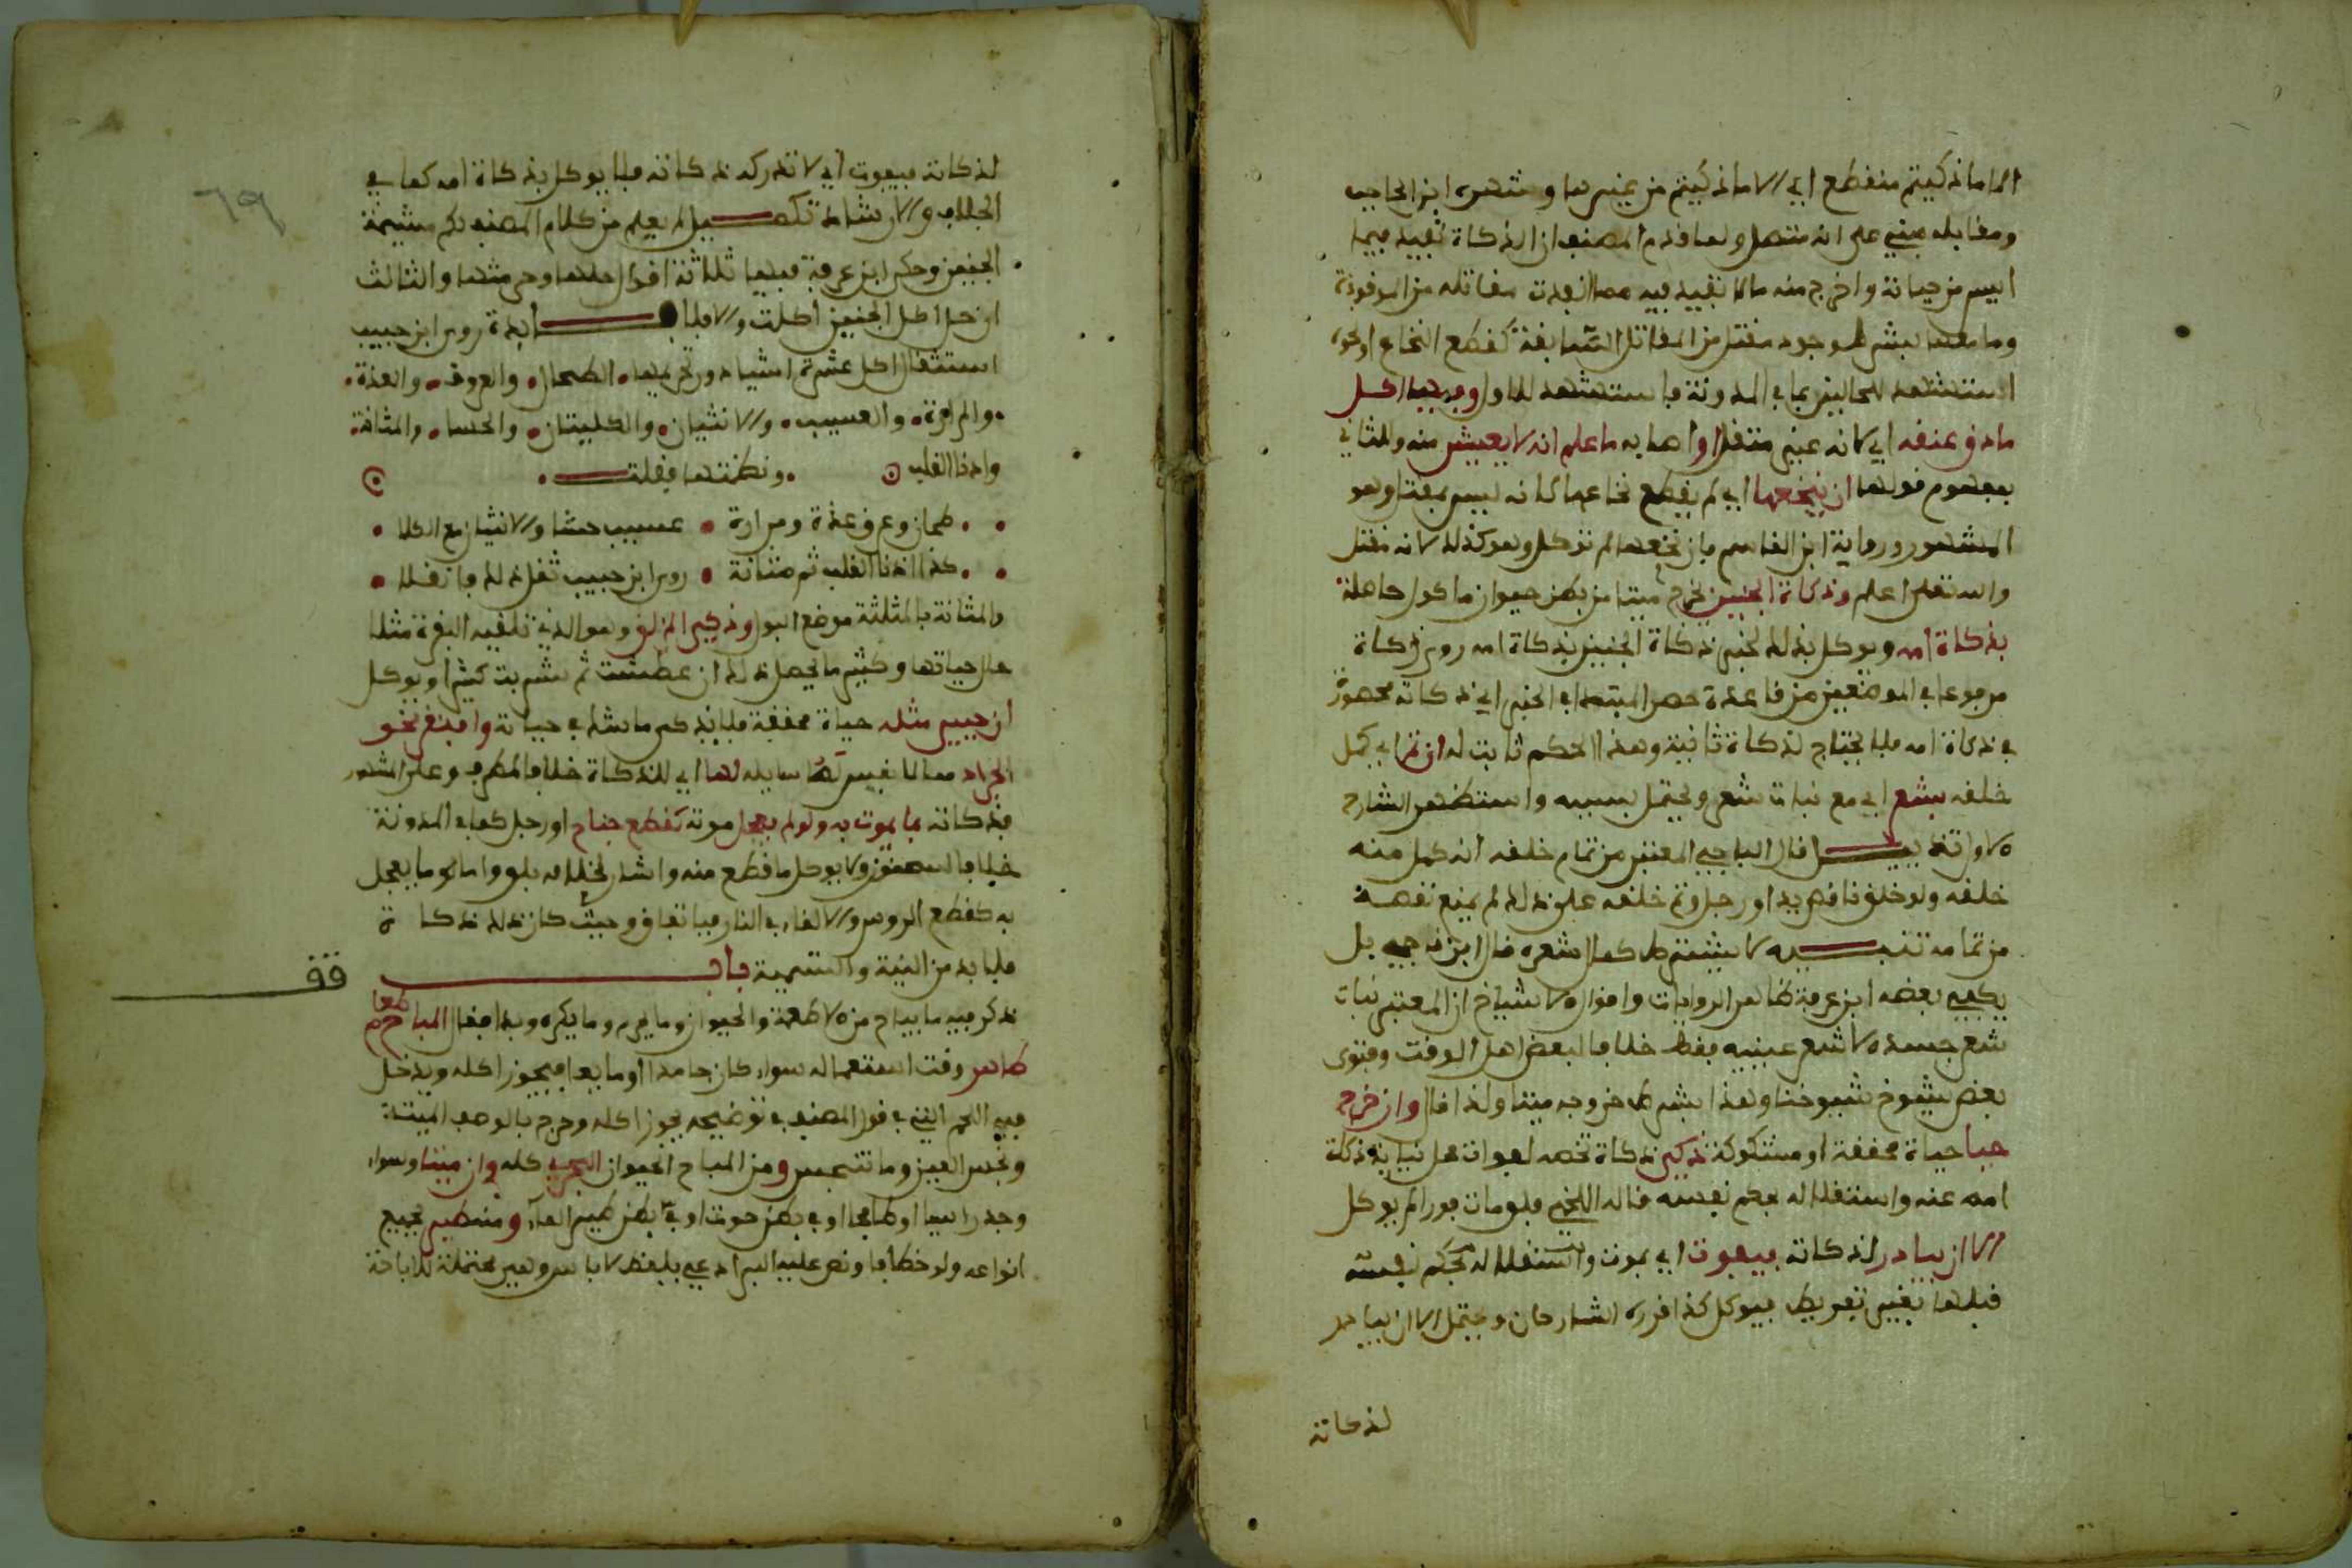 الا ما ذكيتم منقطع اي الا ما ذكيتم من غيرها وشهره ابن الحاجب
ومقابله مبني على انه متصل ولما قدم المصنف ان الذكاة تفيد فيما
ايس من حياته واخرج منه ما لا تفيد فيه مما انفذت مقاتله من الموقوذة
وما معها بشرط وجود مقتل من المقاتل السابقة كقطع النخاع او نحوه
استشهد للحالين بما في المدونة فاستشهد للاول وفيها اكل
ما دق عنقه اي لانه غير مقتل او اصابه ما علم انه لا يعيش منه وللثاني
بمفهوم قولها ان لم ينخعها اي لم يقطع نخاعها لانه ليس بمقتل وهو
المشهور ورواية ابن القاسم فان نخعها لم توكل وهو كذلك لانه مقتل
والله تعلى اعلم وذكاة الجنين يخرج ميتا من بطن حيوان ماكول حاصلة
بذكاة امه ويوكل بذلك لخبر ذكاة الجنين ذكاة امه روي ذكاة
مرفوعا في الموضعين من قاعدة حصر المبتدا في الخبر اي ذكاته محصورة
في ذكاة امه فلا يحتاج لذكاة ثانية وهذا الحكم ثابت له ان تم اي كمل
خلقه بشعر اي مع نبات شعر ويحتمل بسببه واستظهر الشارح
الاول تذييل قال الباجي المعتبر من تمام خلقه انه كمل منه
خلقه ولو خلق ناقص يد او رجل وتم خلقه على ذلك لم يمنع نقصه
من تمامه تنبيه لا يشترط كمال شعره قال ابن ناجي بل
يكفي بعضه ابن عرفة ظاهر الروايات واقوال الاشياخ ان المعتبر نبات
شعر جسده لا شعر عينيه فقط خلافا لبعض اهل الوقت وفتوى
بعض شيوخ شيوخنا وهذا بشرط خروجه ميتا ولذا قال وان خرج
حيا حياة محققة او مشكوكة ذكي ذكاة تخصه لفوات محل نيابة ذكاة
امه عنه واستقلاله بحكم نفسه قاله اللخمي فلو مات فورا لم يوكل
الا ان يبادر لذكاته فيفوت اي يموت واستقلاله بحكم نفسه
قبلها بغير تفريط فيوكل كذا قرره الشارحان ويحتمل الا ان يبادر
لذكاته
لذكاته فيفوت اي لا تدرك ذكاته فلا يوكل بذكاة امه كما في
الجلاب والارشاد تكميل لم يعلم من كلام المصنف حكم مشيمة
الجنين وحكى ابن عرفة فيها ثلاثة اقوال حلها وحرمتها والثالث
ان حل اكل الجنين اكلت والا فلا فائدة روى ابن حبيب
استثقال اكل عشرة اشياء دون تحريمها الطحال والعروق والغدة
والمرارة والعسيب والانثيان والكليتان والحشا والمثانة
واذنا القلب ونظمتها فقلت
طحال وعرق غدة ومرارة عسيب حشا والانثيان مع الكلا
كذا اذنا القلب ثم مثانة روى ابن حبيب ثقل ذلك فانقلا
والمثانة بالمثلثة موضع البول وذكي المزلق وهو الذي تلقيه البقرة مثلا
حال حياتها وكثير ما يحصل ذلك ان عطشت ثم شربت كثيرا ويوكل
ان حيي مثله حياة محققة فلا يذكى ما شك في حياته وافتقر نحو
الجراد مما لا نفس له سايلة لها اي للذكاة خلافا لمطرف وعلى المشهور
فذكاته بما يموت به ولو لم يعجل موته كقطع جناح او رجل كما في المدونة
خلافا لسحنون ولا يوكل ما قطع منه واشار لخلافه بلو واما نحو ما يعجل
به كقطع الروس والالقاء في النار فباتفاق وحيث كان ذلك ذكاة
فلا بد من النية والتسمية باب
قف
ذكر فيه ما يباح من الاطعمة والحيوان وما يحرم وما يكره وبدا فقال المباح طعام
طاهر وقت استعماله سواء كان جامدا او مايعا فيجوز اكله ويدخل
فيه اللحم الني في قول المصنف في توضيحه يجوز اكله وخرج بالوصف الميتة
ونجس العين وما تنجس ومن المباح الحيوان البحري كله وان ميتا وسواء
وجد راسيا او طافيا او في بطن حوت او في بطن طير الماء ومنه طير بجميع
انواعه ولو خطافا ونص عليه البراذعي بلفظ لا باس وهي محتملة للاباحة